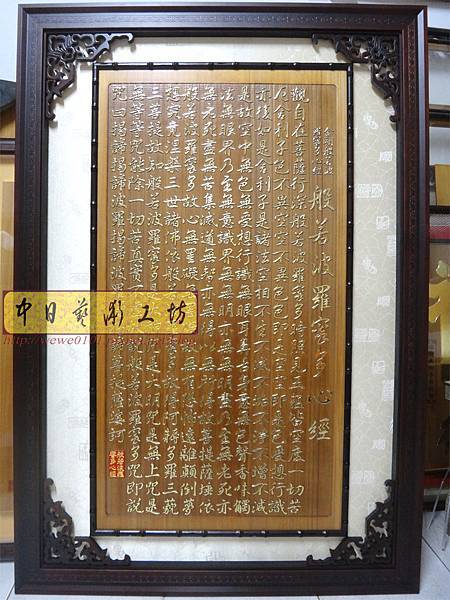 般若波羅蜜多心經
觀自在菩薩行深般若波羅蜜多時照見五蘊皆空度一切苦
厄舍利子色不異空空不異色色即是空空即是色受想行識
亦復如是舍利子是諸法空相不生不滅不垢不淨不增不減
是故空中無色無受想行識無眼耳鼻舌身意無色聲香味觸
法無眼界乃至無意識界無無明亦無無明盡乃至無老死亦
無老死盡無苦集滅道無智亦無得以無所得故菩提薩埵依
般若波羅蜜多故心無罣礙無罣礙故無有恐怖遠離顛倒夢
想究竟涅槃三世諸佛依般 多故得阿耨多羅三藐
三菩提故知般若波羅蜜多是 是大明咒是無上咒是
無等等咒能除一切苦真實 說般若波羅蜜多咒即說
咒曰揭諦揭諦波羅揭諦波羅 菩提薩婆訶
般若波羅
蜜多心經
中日藝術工坊